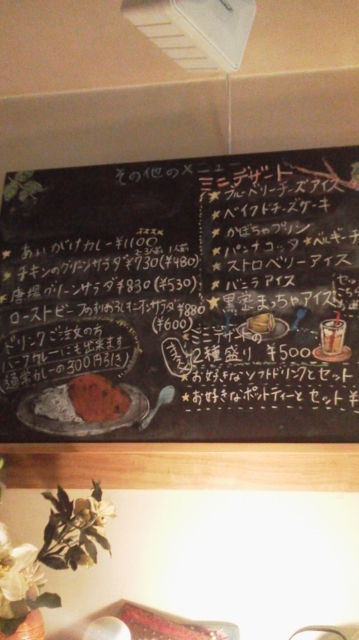 その他のメニュー
おススメ
あいがけカレー ¥1100
2人前 1人前
チキンのグリーンサラダ ¥730(¥480)
唐揚グリーンサラダ ¥830(¥530)
ローストビーフのすりおろしオニオンサラダ ¥880
(¥600)
ドリンクご注文の方
ハーフカレーにも出来ます
通常カレーの300円引き
ミニデザート
ブルーベリーチーズアイス
ベイクドチーズケーキ
かぼちゃプリン
パンナコッタ
ストロベリーアイス
バニラアイス
黒蜜まっちゃアイス
ミニデザートの
2種盛り ¥500
お好きなソフトドリンクとセット
お好きなポットティーとセット ¥